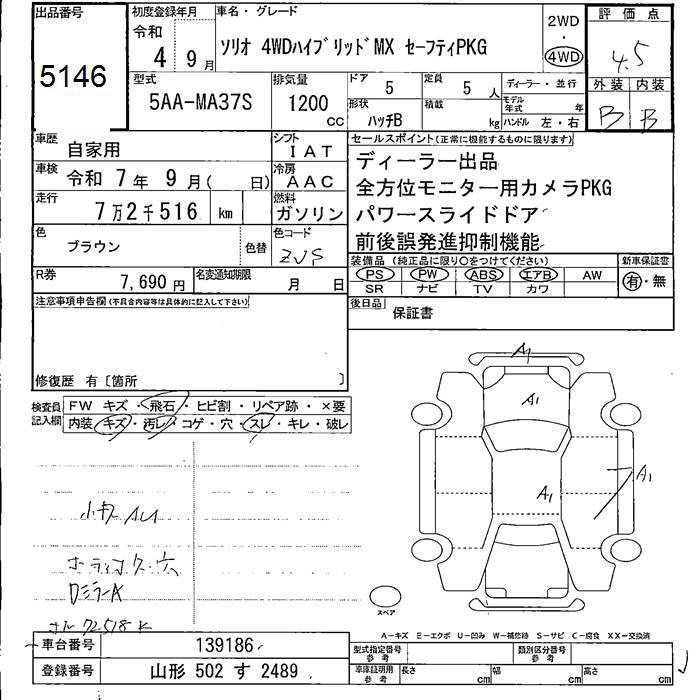 出品番号 初度登録年月 車名・グレード 2WD 評価点
5146 令和 4 9月 ソリオ 4WDハイブリッドMX セーフティPKG 4WD 4.5
型式 排気量 ドア 定員 ディーラー・並行 外装 内装
5AA-MA37S 1200 CC 5 5人 モデル年式 年 B B
形状 積載
ハッチB kg ハンドル 左・右
車歴 自家用 シフト IAT セールスポイント(正常に機能するものに限ります)
車検 令和 7年 9月( 日) 冷房 AAC ディーラー出品
走行 7万2千516 km 燃料 ガソリン 全方位モニター用カメラPKG
パワースライドドア
色 ブラウン 色替 色コード 前後誤発進抑制機能
装備品(純正品に限り○をつけてください) 新車保証書
R券 7,690円 名変通知期限 月 日 PS PW ABS エアB AW 有・無
SR ナビ TV カワ
注意事項申告欄(不具合内容等は具体的に記入して下さい) 後日品 保証書
修復歴 有〔箇所 〕
検査員記入欄 FW キズ・飛石・ヒビ割・リペア跡・×要
内装 キズ・汚レ・コゲ・穴・スレ・キレ・破レ
A1
A1
A1
A1
DミラーA
72518K
スペア
A-キズ E-エクボ U-凹み W-補修跡 S-サビ C-腐食 XX-交換済
車台番号 139186 型式指定番号 参考 類別区分番号 参考
登録番号 山形 502 す 2489 車庫証明用 参考 長さ cm 幅 cm 高さ cm